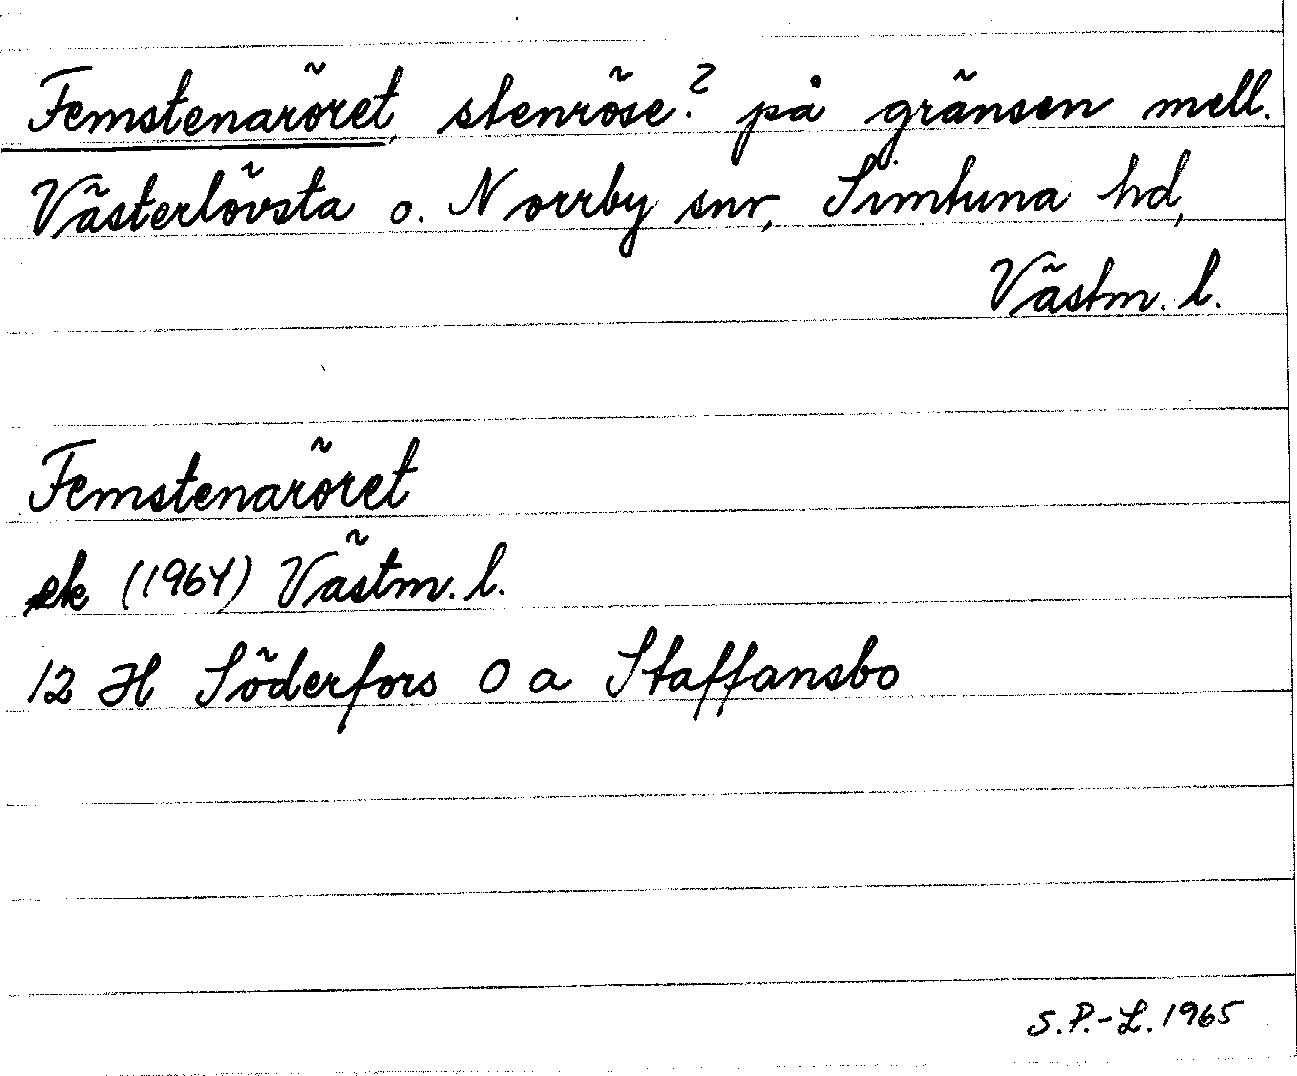 Femstenaröret, stenröse? på gränsen mell.
Västerlövsta o. Norrby snr, Simtuna hd,
Västm. l.
Femstenaröret
ek (1964) Västm. l.
12 H Söderfors O a Staffansbo
S.P.-L. 1965